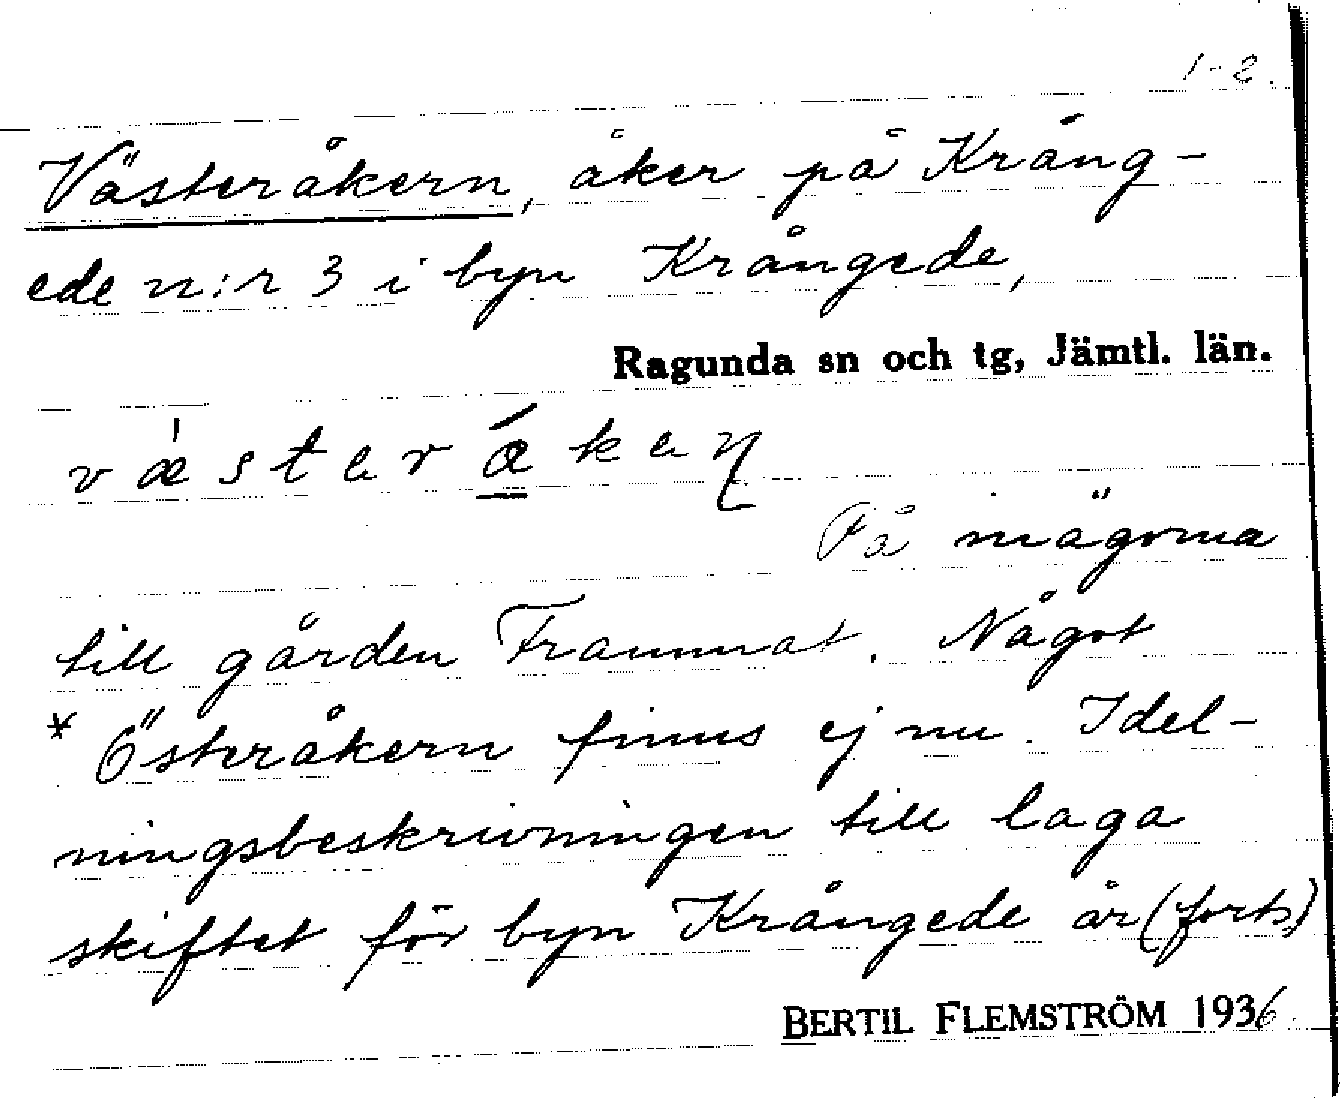 1-2.
Västeråkern, åker på Kräng-
ede n:r 3 i byn Krångede,
Ragunda sn och tg, Jämtl. län.
På inägorna
till gården Frammat. Något
* Österåkern finns ej nu. I del-
ningsbeskrivningen till laga
skiftet för byn Krångede år (forts)
BERTIL FLEMSTRÖM 1936.